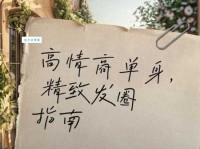 高情商单身,
精致发圈
指南